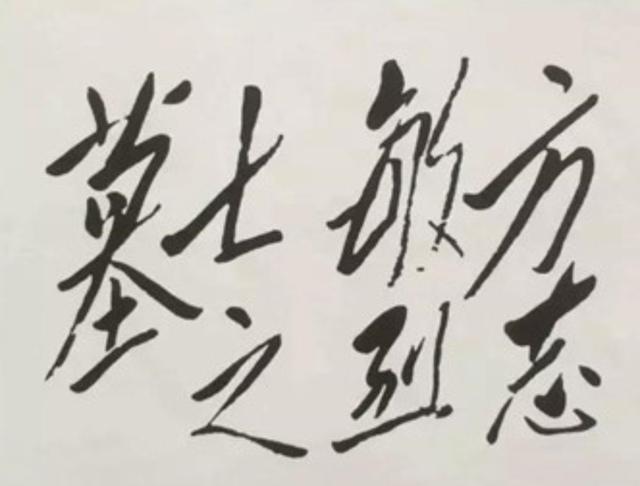 方志
敏烈
士之
墓